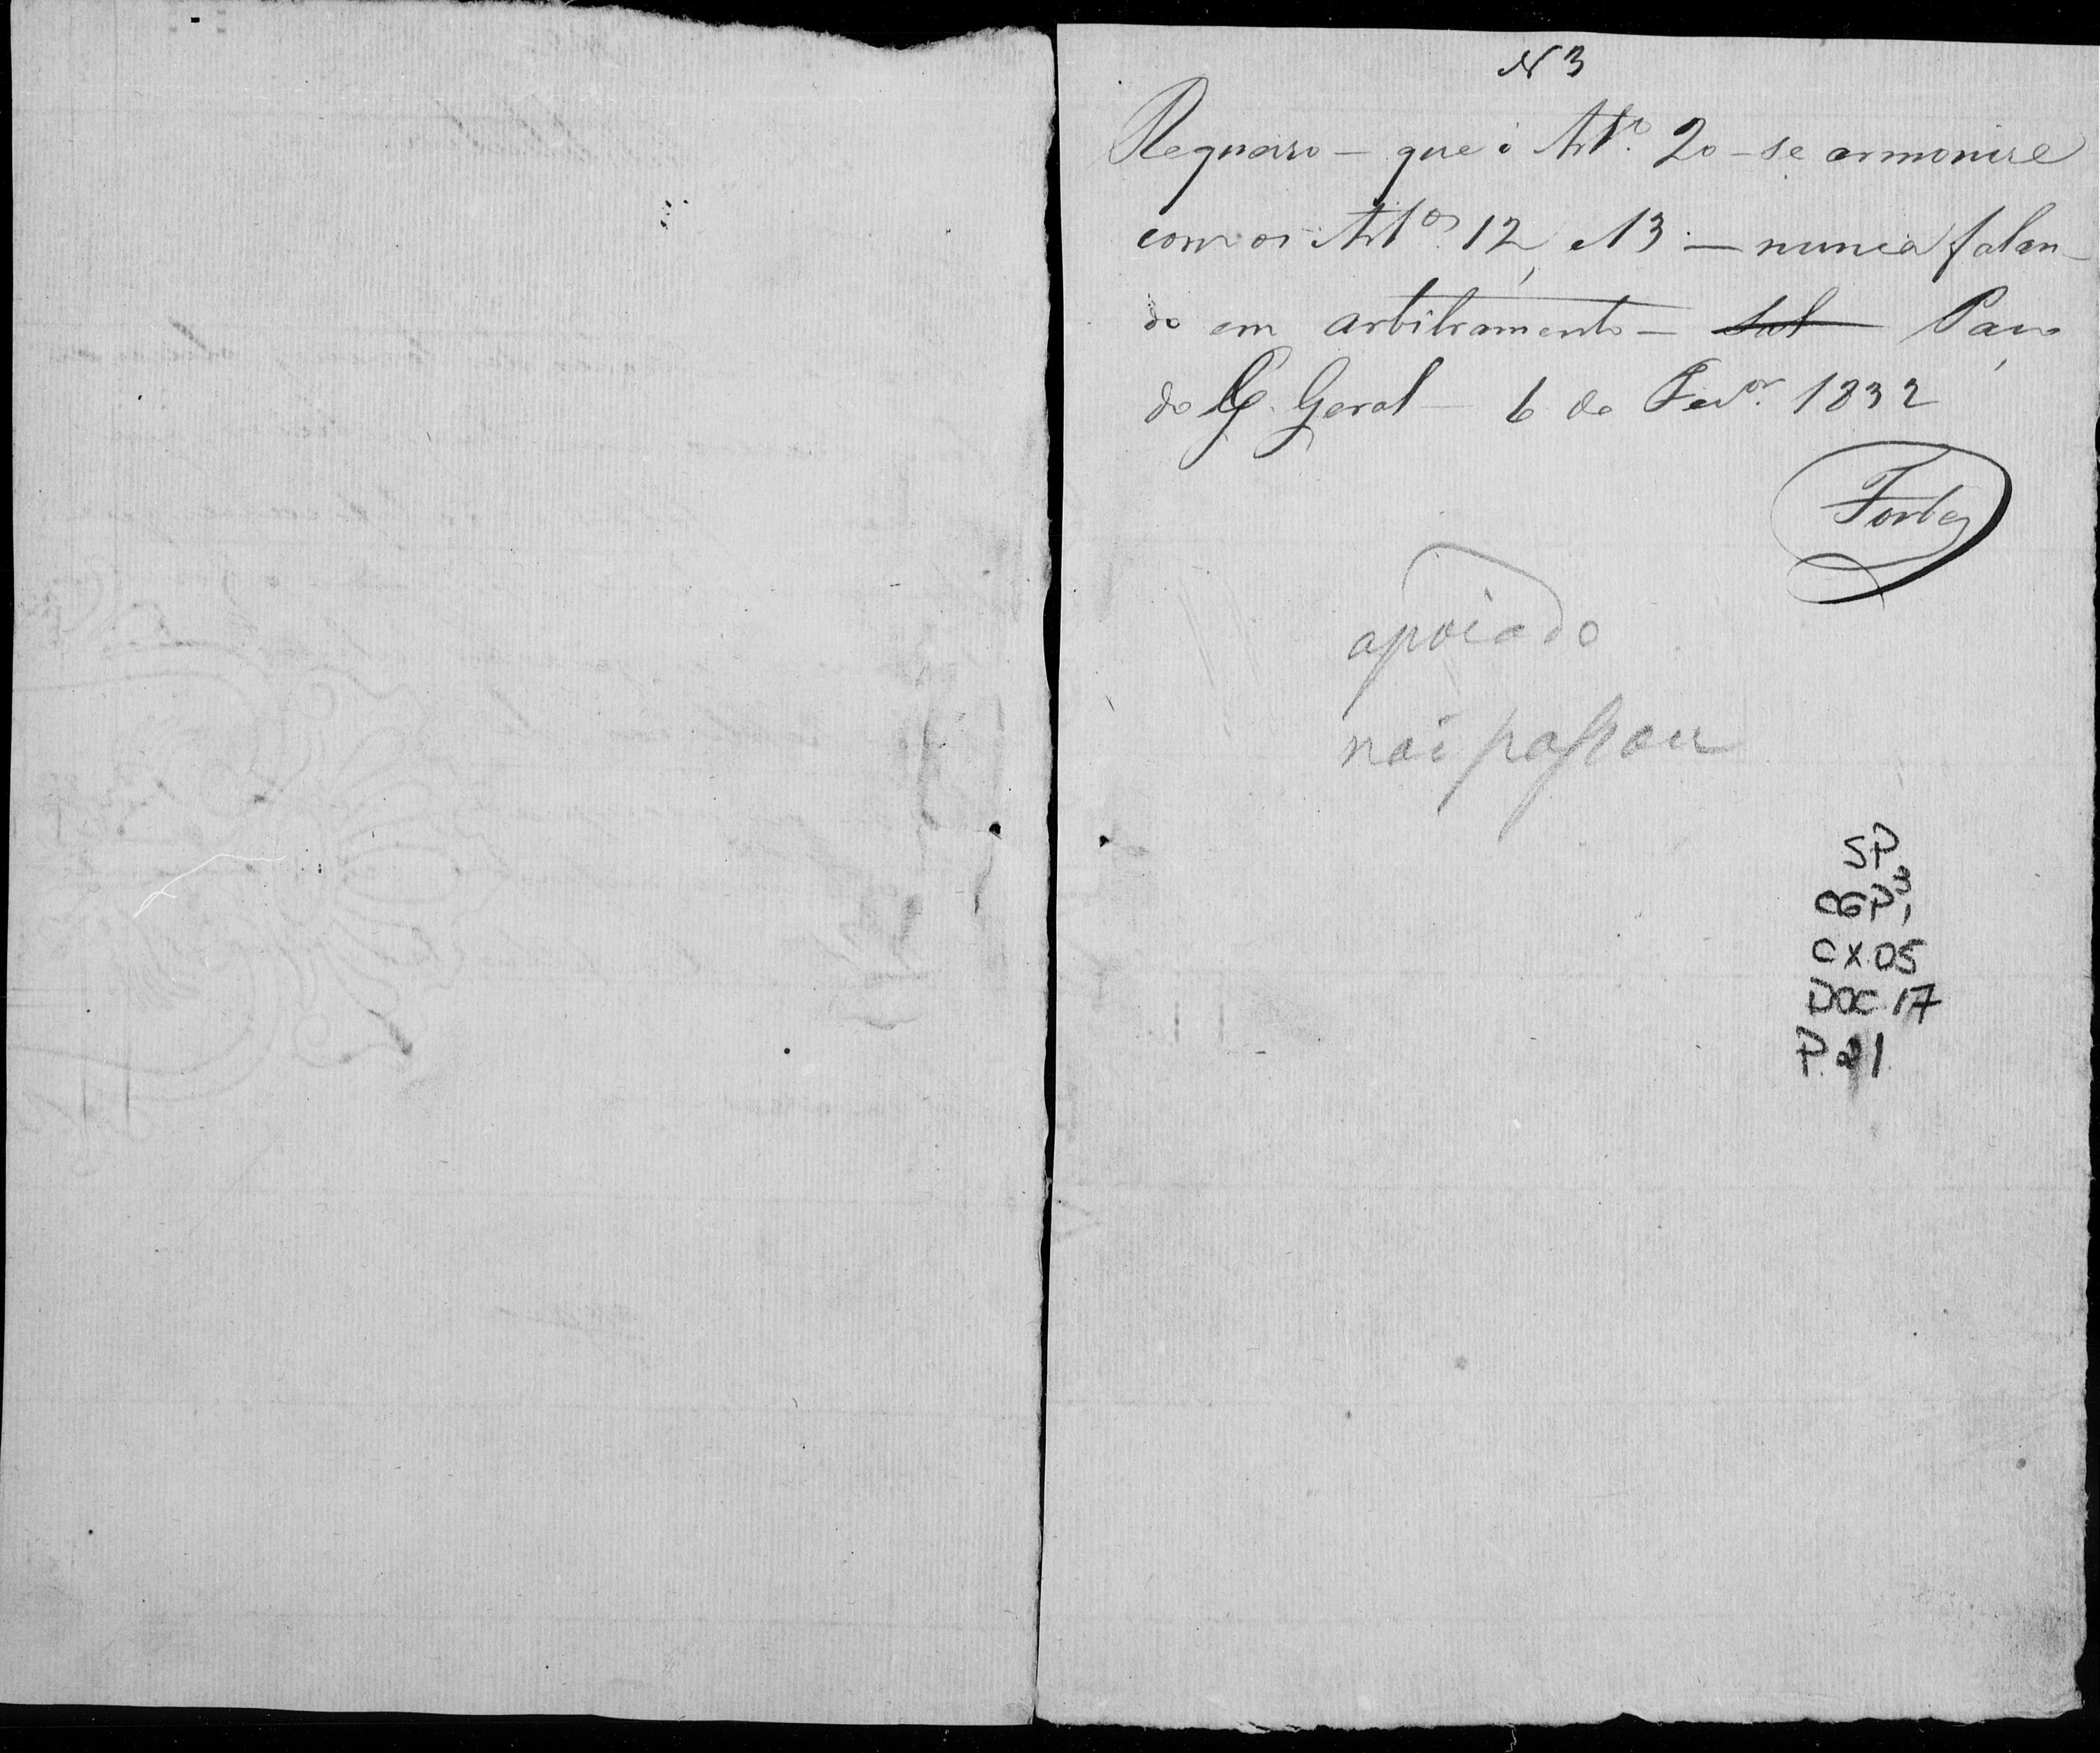 N 3
Requeiro - que o Art.º 20 - se armonise
com os Art.os 12, e 13 - nunca falan-
do em arbitramento - Sal Paço
do C. Geral - 6 de Fevr.º 1832
Forbes
apoiado
não passou
SP
CGP3,
CX05
DOC 17